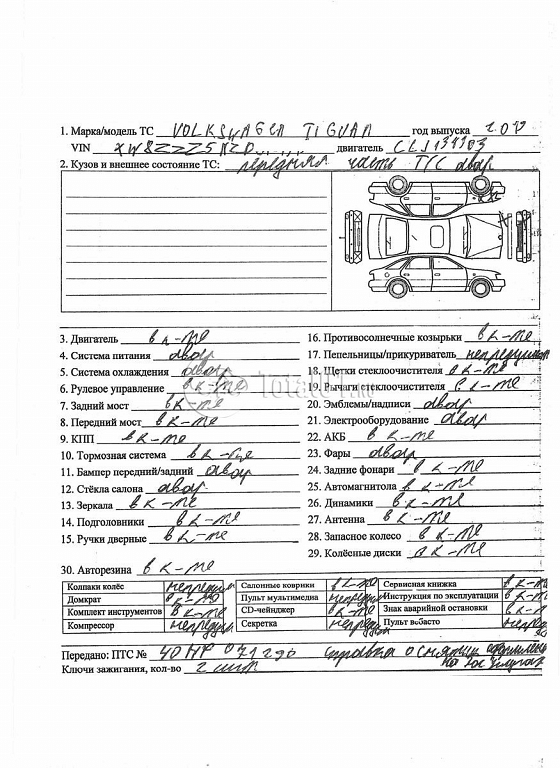 1. Марка/модель ТС VOLKSWAGEN TIGUAN год выпуска
VIN XW8ZZZ5NZD двигатель
2. Кузов и внешнее состояние ТС: передняя часть Т/С авар
3. Двигатель в к-те
4. Система питания авар
5. Система охлаждения авар
6. Рулевое управление в к-те
7. Задний мост в к-те
8. Передний мост в к-те
9. КПП в к-те
10. Тормозная система в к-те
11. Бампер передний/задний авар
12. Стёкла салона авар
13. Зеркала в к-те
14. Подголовники в к-те
15. Ручки дверные в к-те
16. Противосолнечные козырьки в к-те
17. Пепельницы/прикуриватель
18. Щетки стеклоочистителя в к-те
19. Рычаги стеклоочистителя в к-те
20. Эмблемы/надписи авар
21. Электрооборудование авар
22. АКБ в к-те
23. Фары авар
24. Задние фонари в к-те
25. Автомагнитола в к-те
26. Динамики в к-те
27. Антенна в к-те
28. Запасное колесо в к-те
29. Колёсные диски в к-те
30. Авторезина в к-те
Колпаки колёс Салонные коврики в к-те Сервисная книжка в к-те
Домкрат в к-те Пульт мультимедиа Инструкция по эксплуатации в к-те
Комплект инструментов в к-те CD-чейнджер в к-те Знак аварийной остановки в к-т
Компрессор Секретка Пульт вебасто
Передано: ПТС № 40 НР 071290 справка о
Ключи зажигания, кол-во 2 шт